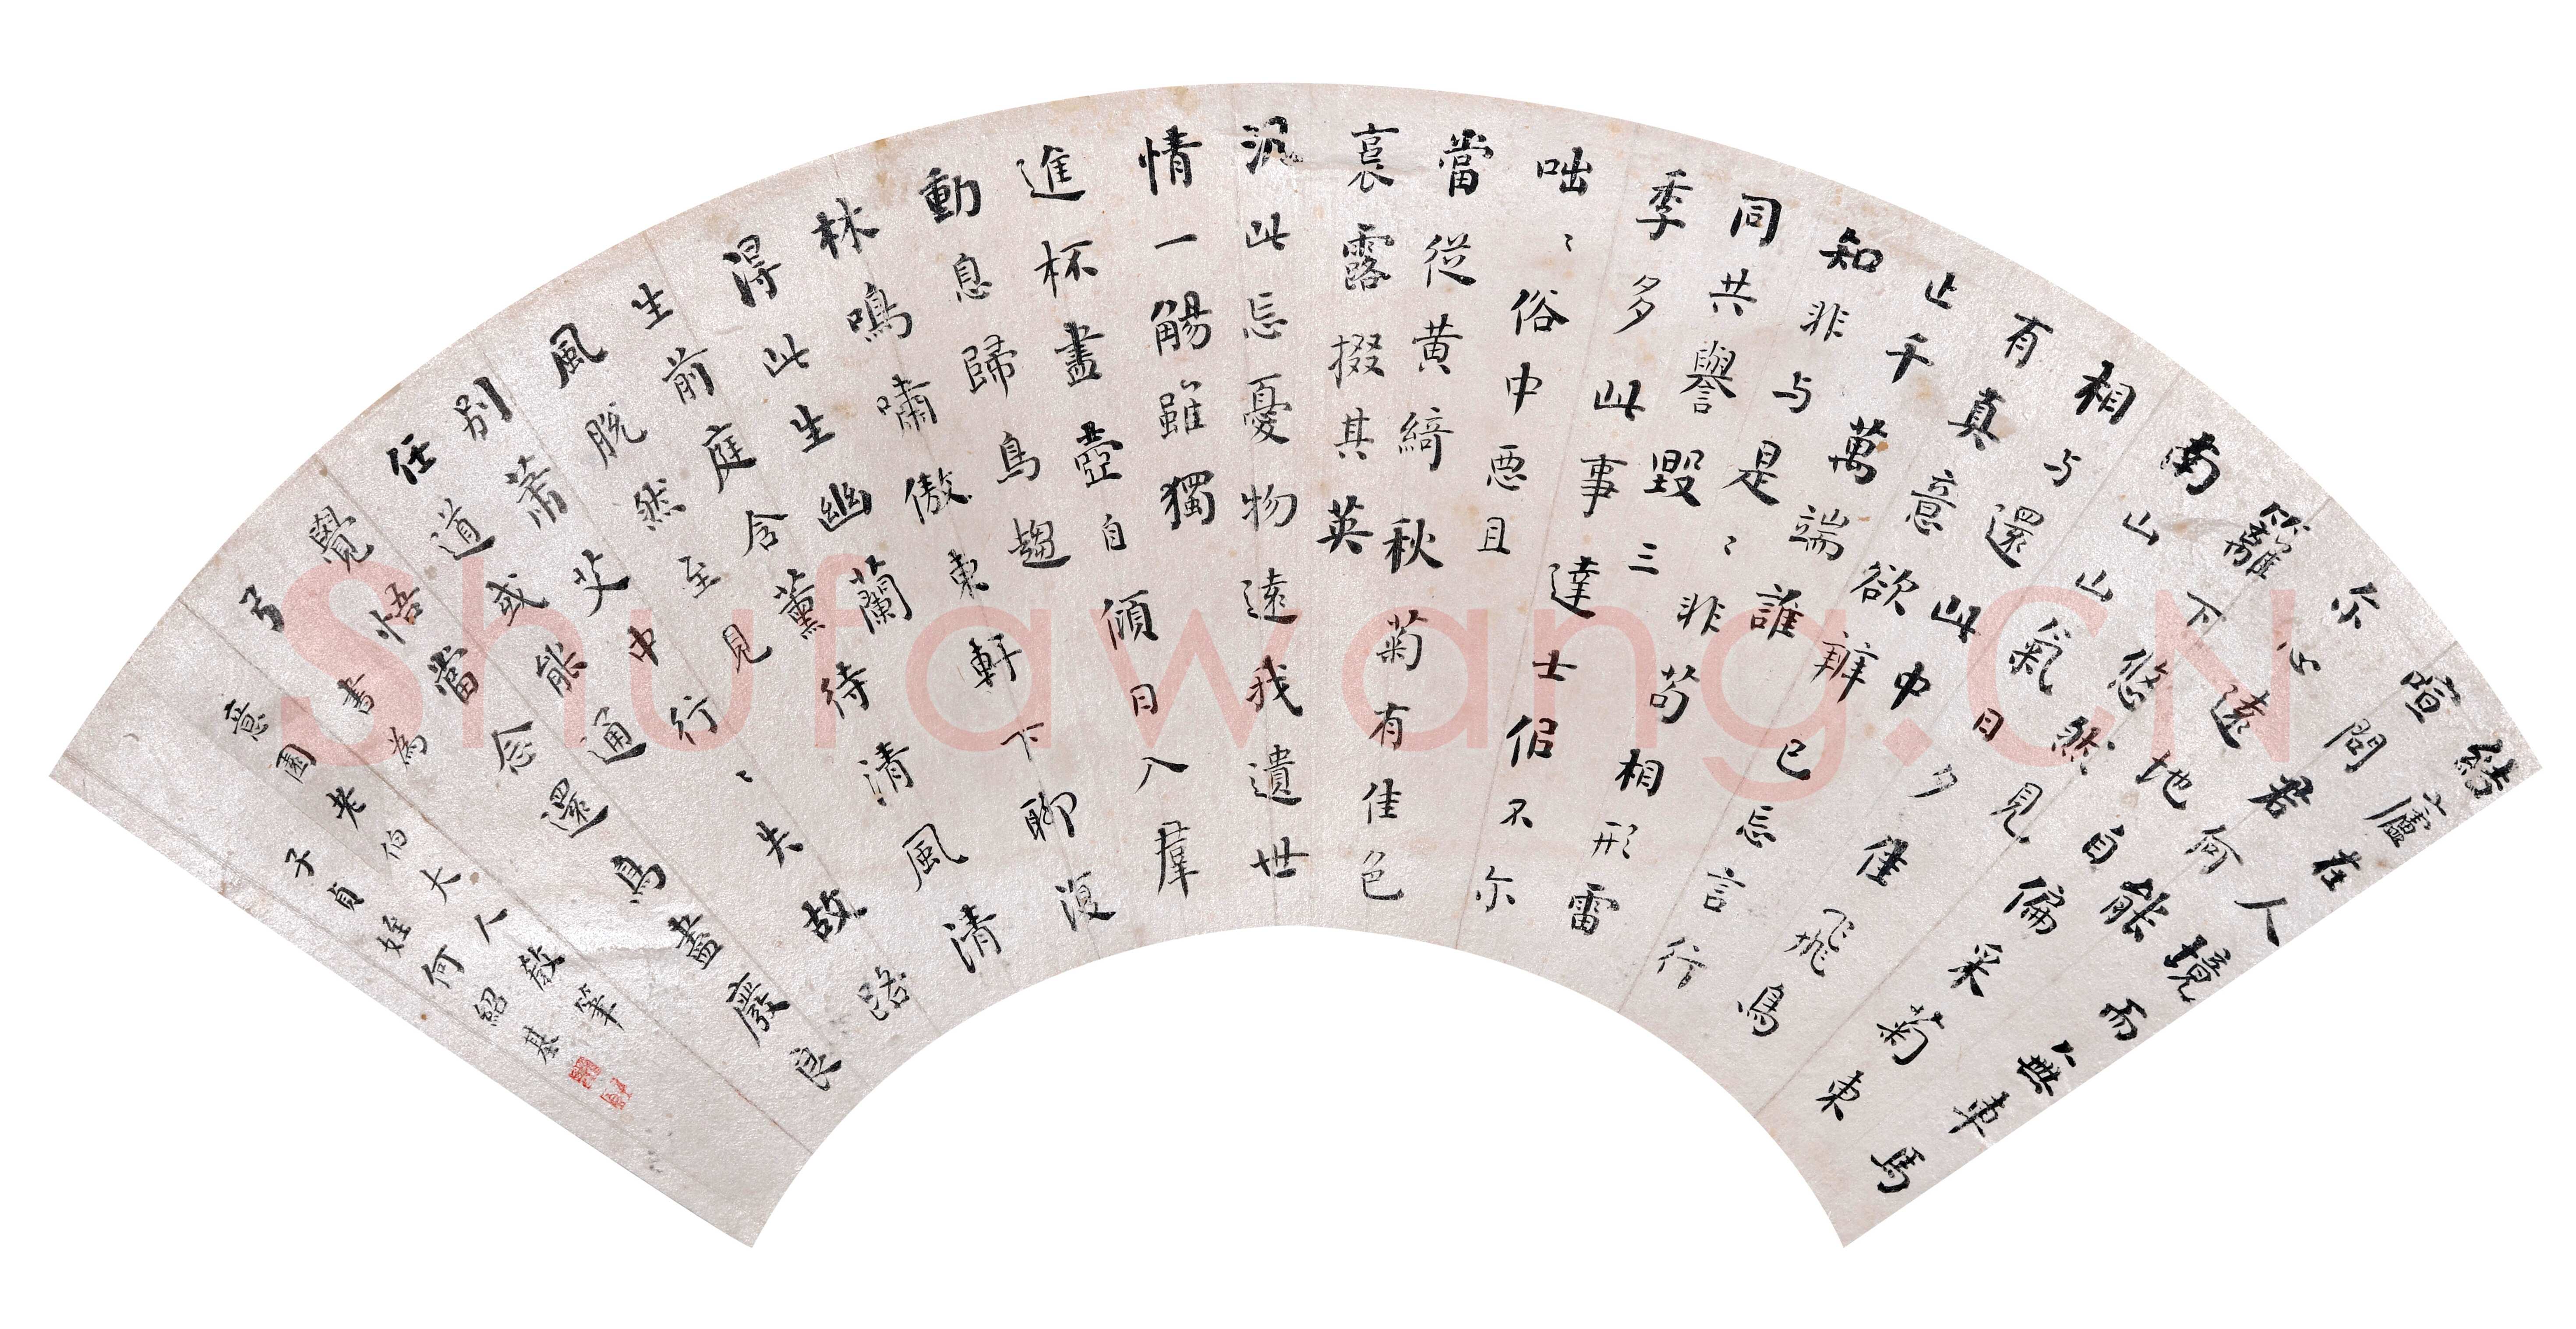 結廬在人境而無車馬
喧問君何能
尔心遠地自偏采菊東
籬下悠然見
南山山氣日夕佳飛鳥
相与還此中
有真意欲辨已忘言行
止千萬端誰
知非与是〻非苟相形雷
同共譽毀三
季多此事達士侣不尔
咄〻俗中惡且
當從黃綺秋菊有佳色
裛露掇其英
汎此忘憂物遠我遺世
情一觴雖獨
進杯盡壺自傾日入羣
動息歸鳥趨
林鳴嘯傲東軒下聊復
得此生幽蘭
生前庭含薰待清風清
風脫然至見
別蕭艾中行〻失故路
任道或能通
覺悟當念還鳥盡廢良
弓 書為
意園老伯大人教筆
子貞姪何紹基
Shufawang.CN